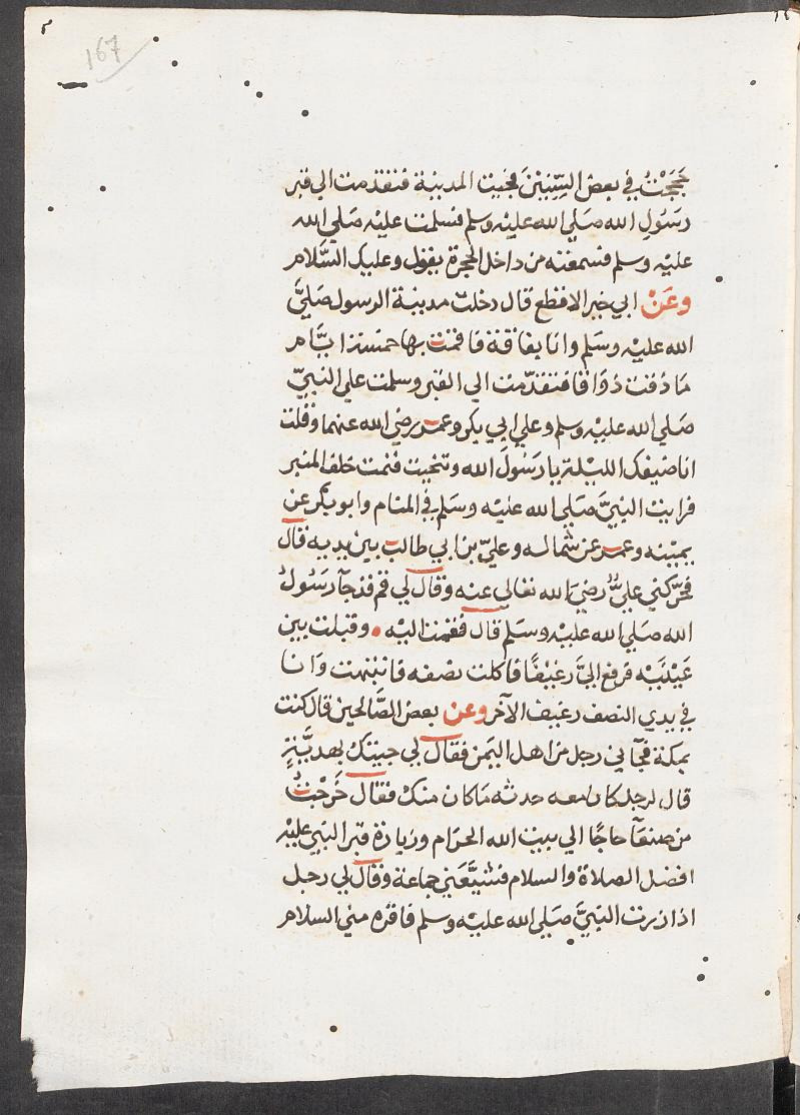 167
حَجَجْتُ في بعض السِّنِيْنَ فجيت المدينة فتقدمت الي قبر
رسَوُلِ الله صَلي الله عليْه وسلم فسلمت عليْه صَلي الله
عليْه وسلم فسمعته من داخل الحجرة يقول وعليك السَّلام
وعَنْ ابي خير الاقطع قال دخلت مدينة الرسول صَليَّ
الله عليْه وسَلم وانا بفاقة فاقمت بها خمسة ايَّام
مَا ذقت ذوَاقا فتقدّمت الي القبر وسلمت علي النبيّ
صَلي الله عليْه وسلم وعلي ابي بكر وعمر رضي الله عنهما وقلت
انا ضيفك الليْلة يا رَسُولَ الله وتنحيت فنمت خلف المنبر
فرايت النبيَّ صَلي الله عليْه وسَلم في المنام وابو بكر عن
يمينه وعمر عن شماله وعليّ بن ابي طالب بين يديه قال
فحرّكني عليٌّ رضيَ الله تعالي عنه وقال لي قم قد جآ رسَوُلُ
الله صَلي الله عليْه وسَلم قال فقمت اليْه وقبلت بين
عَيْنيْه فرفع اليَّ رغيْفًا فاكلت نصْفه فانتبهت وَانا
في يدي النصف رغيف الآخر وعن بعض الصَّالحين قال كنت
بمكة فجآني رجل من اهل اليمن فقال لي جيتك بهديَّةٍ
قال لرجل كان معه حدثه مَا كان منك فقال خَرجْتُ
من صنعآ حاجًا الي بيت الله الحرَام وزيارة قبر النبي عليْه
افضل الصلاة والسلام فشيَّعني جماعة وقال لي رجل
اذا زرت النبيَّ صَلي الله عليْه وسلم فاقره مني السلام